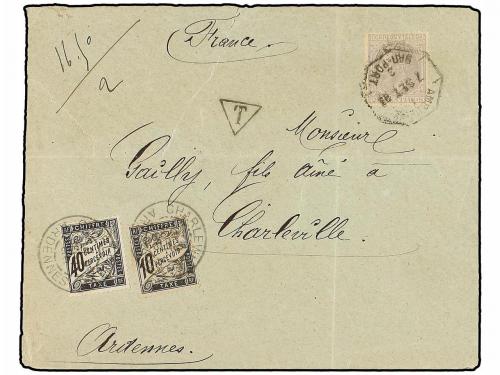 16.50
2
France
7 SET 93
T
Monsieur
Gailly, fils aîné à
Charleville.
CHARLEVILLE
ARDENNES
CHIFFRE
40 CENTIMES
À PERCEVOIR
TAXE
CHIFFRE
10 CENTIMES
À PERCEVOIR
TAXE
Ardennes.